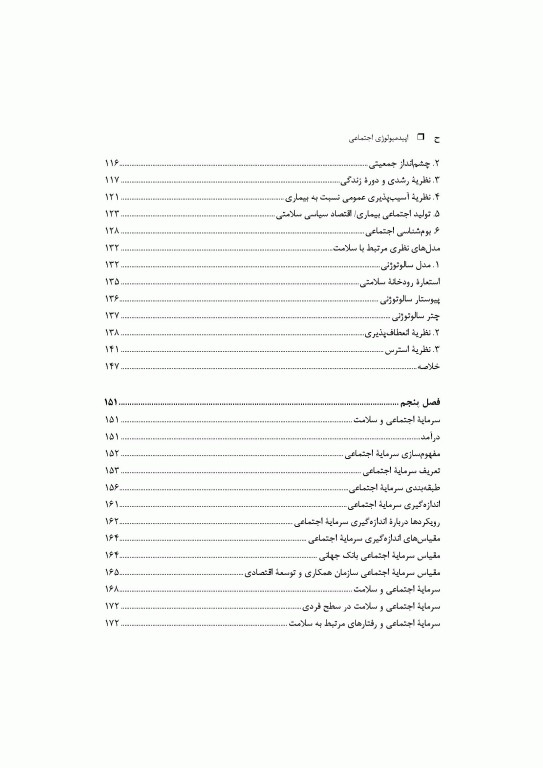 ح ❒ اپیدمیولوژی اجتماعی
۲. چشم‌انداز جمعیتی ........ ۱۱۶
۳. نظریهٔ رشدی و دورهٔ زندگی ........ ۱۱۷
۴. نظریهٔ آسیب‌پذیری عمومی نسبت به بیماری ........ ۱۲۱
۵. تولید اجتماعی بیماری/ اقتصاد سیاسی سلامتی ........ ۱۲۳
۶. بوم‌شناسی اجتماعی ........ ۱۲۸
مدل‌های نظری مرتبط با سلامت ........ ۱۳۲
۱. مدل سالوتوژنی ........ ۱۳۲
استعارهٔ رودخانهٔ سلامتی ........ ۱۳۵
پیوستار سالوتوژنی ........ ۱۳۶
چتر سالوتوژنی ........ ۱۳۷
۲. نظریهٔ انعطاف‌پذیری ........ ۱۳۸
۳. نظریهٔ استرس ........ ۱۴۱
خلاصه ........ ۱۴۷
فصل پنجم ........ ۱۵۱
سرمایهٔ اجتماعی و سلامت ........ ۱۵۱
درآمد ........ ۱۵۱
مفهوم‌سازی سرمایهٔ اجتماعی ........ ۱۵۲
تعریف سرمایهٔ اجتماعی ........ ۱۵۳
طبقه‌بندی سرمایهٔ اجتماعی ........ ۱۵۶
اندازه‌گیری سرمایهٔ اجتماعی ........ ۱۶۱
رویکردها دربارهٔ اندازه‌گیری سرمایهٔ اجتماعی ........ ۱۶۲
مقیاس‌های اندازه‌گیری سرمایهٔ اجتماعی ........ ۱۶۴
مقیاس سرمایهٔ اجتماعی بانک جهانی ........ ۱۶۴
مقیاس سرمایهٔ اجتماعی سازمان همکاری و توسعهٔ اقتصادی ........ ۱۶۵
سرمایهٔ اجتماعی و سلامت ........ ۱۶۸
سرمایهٔ اجتماعی و سلامت در سطح فردی ........ ۱۷۲
سرمایهٔ اجتماعی و رفتارهای مرتبط به سلامت ........ ۱۷۲